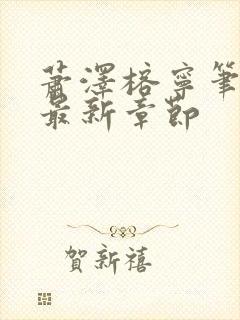 蕭澤榕寧筆
最新章節
賀新禧